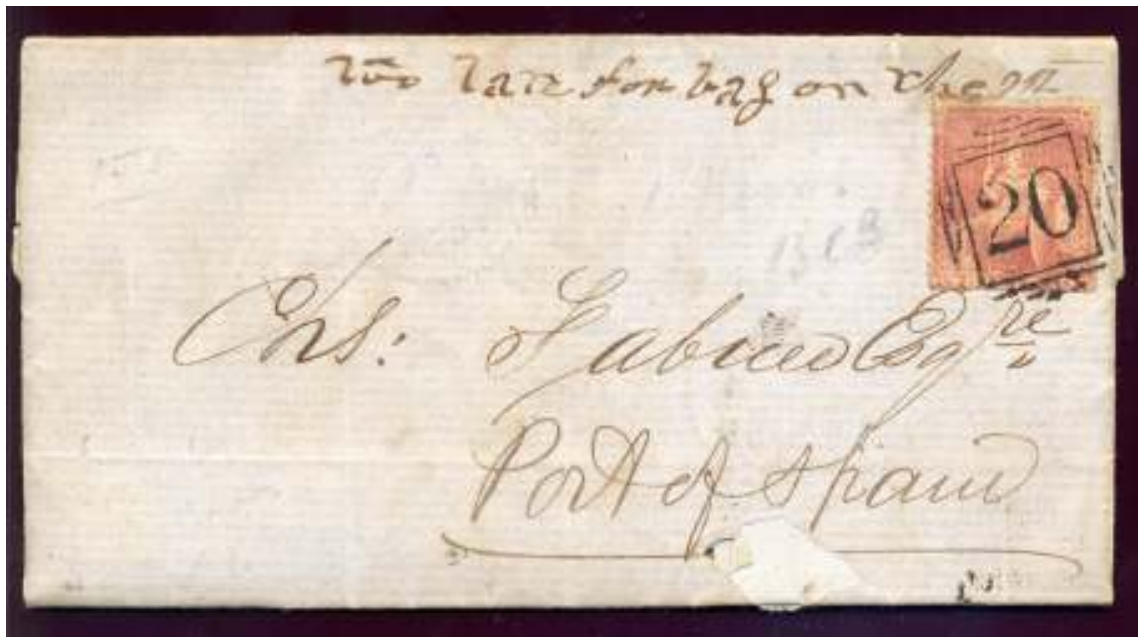 too late for bag on the 22
20
Chs: Fabien Esqre
Port of Spain